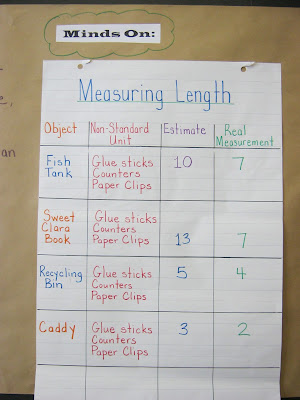 Minds On:
Measuring Length
Object Non-Standard Unit Estimate Real Measurement
Fish Tank Glue sticks Counters Paper Clips 10 7
Sweet Clara Book Glue sticks Counters Paper Clips 13 7
Recycling Bin Glue sticks Counters Paper Clips 5 4
Caddy Glue sticks Counters Paper Clips 3 2
an